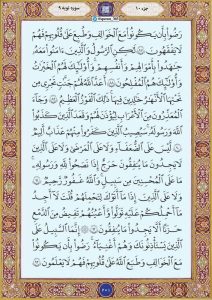 جزء ۱۰
سوره توبه ۹
رَضُوا بِأَن يَكُونُوا مَعَ الْخَوَالِفِ وَطُبِعَ عَلَىٰ قُلُوبِهِمْ فَهُمْ
لَا يَفْقَهُونَ ﴿۸۷﴾ لَٰكِنِ الرَّسُولُ وَالَّذِينَ آمَنُوا مَعَهُ
جَاهَدُوا بِأَمْوَالِهِمْ وَأَنفُسِهِمْ وَأُولَٰئِكَ لَهُمُ الْخَيْرَاتُ
وَأُولَٰئِكَ هُمُ الْمُفْلِحُونَ ﴿۸۸﴾ أَعَدَّ اللَّهُ لَهُمْ جَنَّاتٍ تَجْرِي مِن
تَحْتِهَا الْأَنْهَارُ خَالِدِينَ فِيهَا ذَٰلِكَ الْفَوْزُ الْعَظِيمُ ﴿۸۹﴾ وَجَاءَ
الْمُعَذِّرُونَ مِنَ الْأَعْرَابِ لِيُؤْذَنَ لَهُمْ وَقَعَدَ الَّذِينَ كَذَبُوا
اللَّهَ وَرَسُولَهُ سَيُصِيبُ الَّذِينَ كَفَرُوا مِنْهُمْ عَذَابٌ أَلِيمٌ
﴿۹۰﴾ لَيْسَ عَلَى الضُّعَفَاءِ وَلَا عَلَى الْمَرْضَىٰ وَلَا عَلَى الَّذِينَ
لَا يَجِدُونَ مَا يُنفِقُونَ حَرَجٌ إِذَا نَصَحُوا لِلَّهِ وَرَسُولِهِ
مَا عَلَى الْمُحْسِنِينَ مِن سَبِيلٍ وَاللَّهُ غَفُورٌ رَّحِيمٌ ﴿۹۱﴾
وَلَا عَلَى الَّذِينَ إِذَا مَا أَتَوْكَ لِتَحْمِلَهُمْ قُلْتَ لَا أَجِدُ
مَا أَحْمِلُكُمْ عَلَيْهِ تَوَلَّوا وَّأَعْيُنُهُمْ تَفِيضُ مِنَ الدَّمْعِ
حَزَنًا أَلَّا يَجِدُوا مَا يُنفِقُونَ ﴿۹۲﴾ إِنَّمَا السَّبِيلُ عَلَى
الَّذِينَ يَسْتَأْذِنُونَكَ وَهُمْ أَغْنِيَاءُ رَضُوا بِأَن يَكُونُوا
مَعَ الْخَوَالِفِ وَطَبَعَ اللَّهُ عَلَىٰ قُلُوبِهِمْ فَهُمْ لَا يَعْلَمُونَ ﴿۹۳﴾
۲۰۱